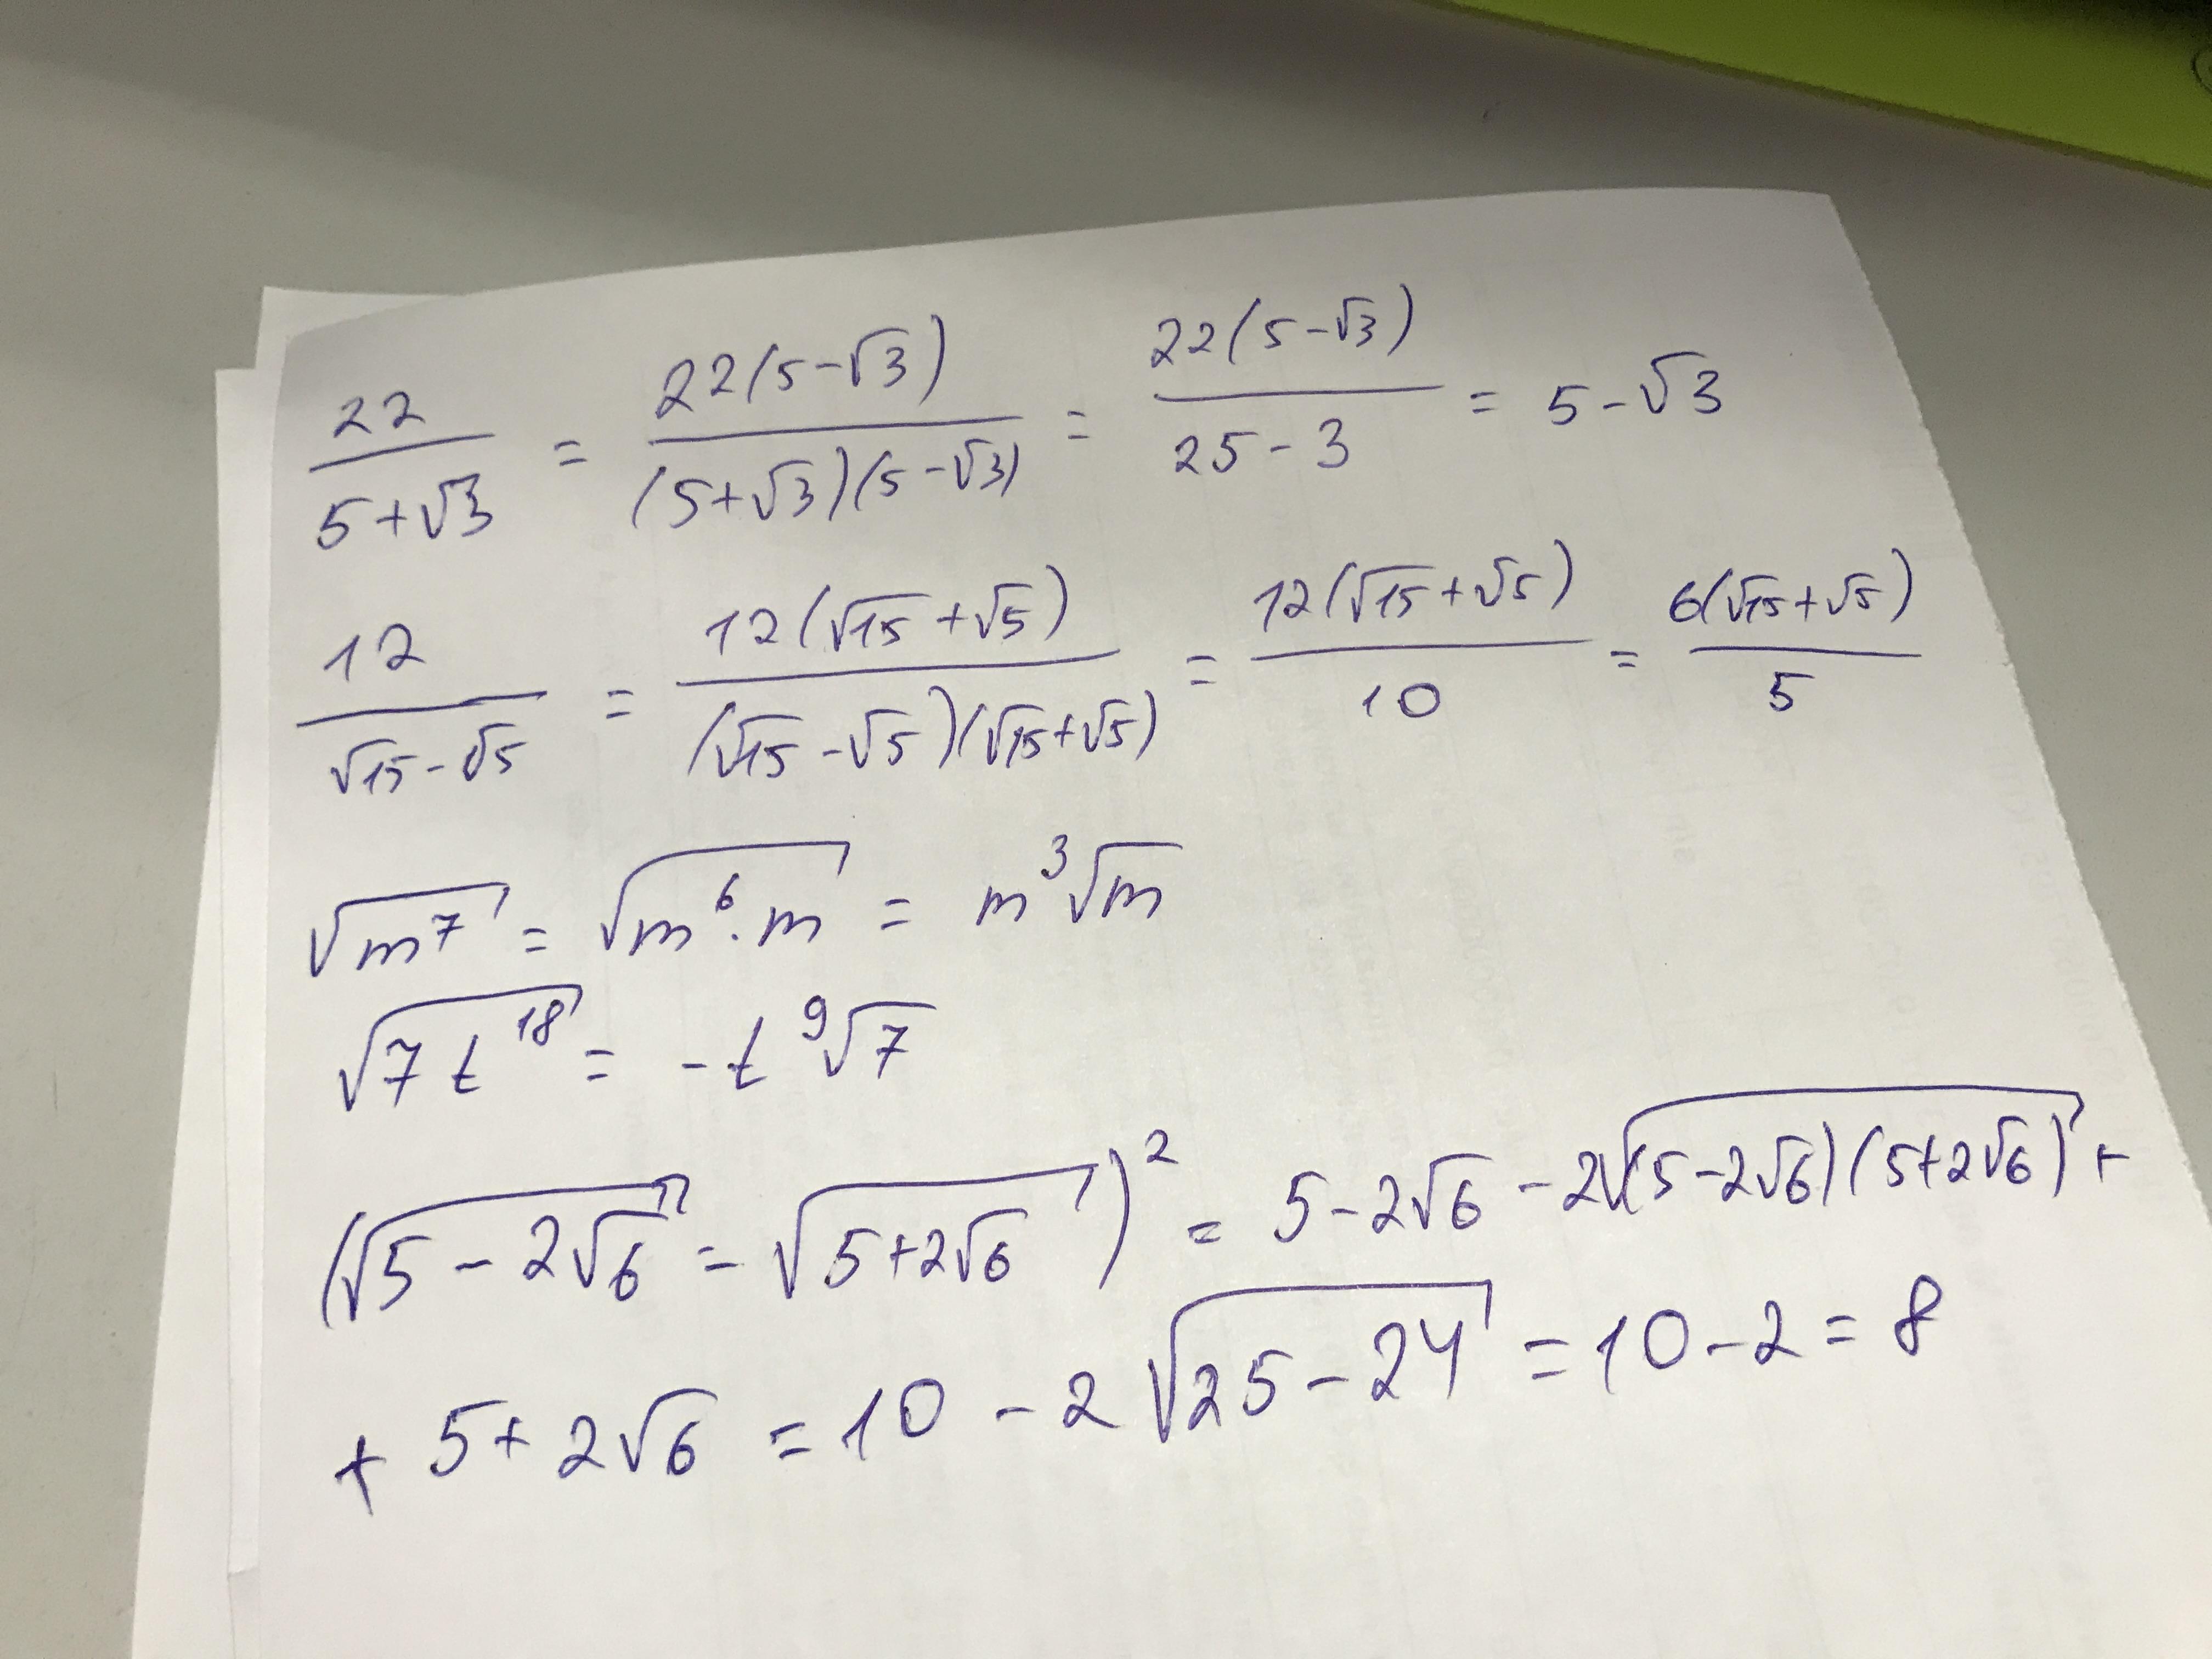 22/(5+√3) = 22(5-√3)/((5+√3)(5-√3)) = 22(5-√3)/(25-3) = 5-√3
12/(√15-√5) = 12(√15+√5)/((√15-√5)(√15+√5)) = 12(√15+√5)/10 = 6(√15+√5)/5
√(m⁷) = √(m⁶·m) = m³√m
√(7t¹⁸) = -t⁹√7
(√(5-2√6) - √(5+2√6))² = 5-2√6-2√((5-2√6)(5+2√6))+
+5+2√6 = 10-2√(25-24) = 10-2 = 8